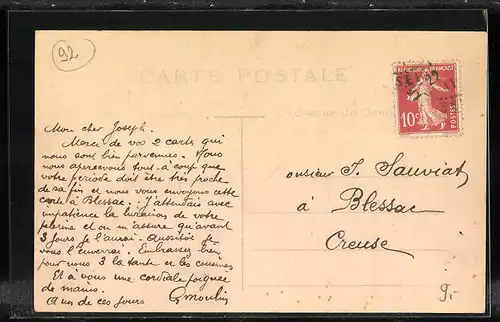 92
CARTE POSTALE
RÉPUBLIQUE FRANÇAISE
10c
POSTES
Mon cher Joseph.
Merci de vos 2 cartes qui
nous sont bien parvenues. Nous
nous apercevons tout à coup que
votre période doit être très proche
de sa fin et nous vous envoyons cette
carte à Blessac. J'attendais avec
impatience la livraison de votre
pelerine et on m'assure qu'avant
3 jours je l'aurai. Aussitôt je
vous l'enverrai. Embrassez bien
pour nous 3 la tante et les cousines
Et à vous une cordiale poignée
de mains.
A un de ces jours Gmoulin
onsieur J. Sauviat
à Blessac
Creuse
9.-